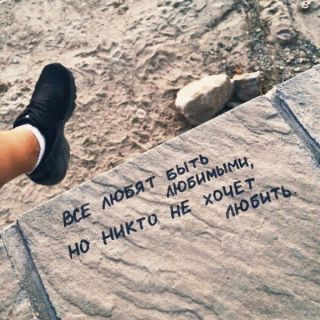 ВСЕ ЛЮБЯТ БЫТЬ
ЛЮБИМЫМИ,
НО НИКТО НЕ ХОЧЕТ
ЛЮБИТЬ.